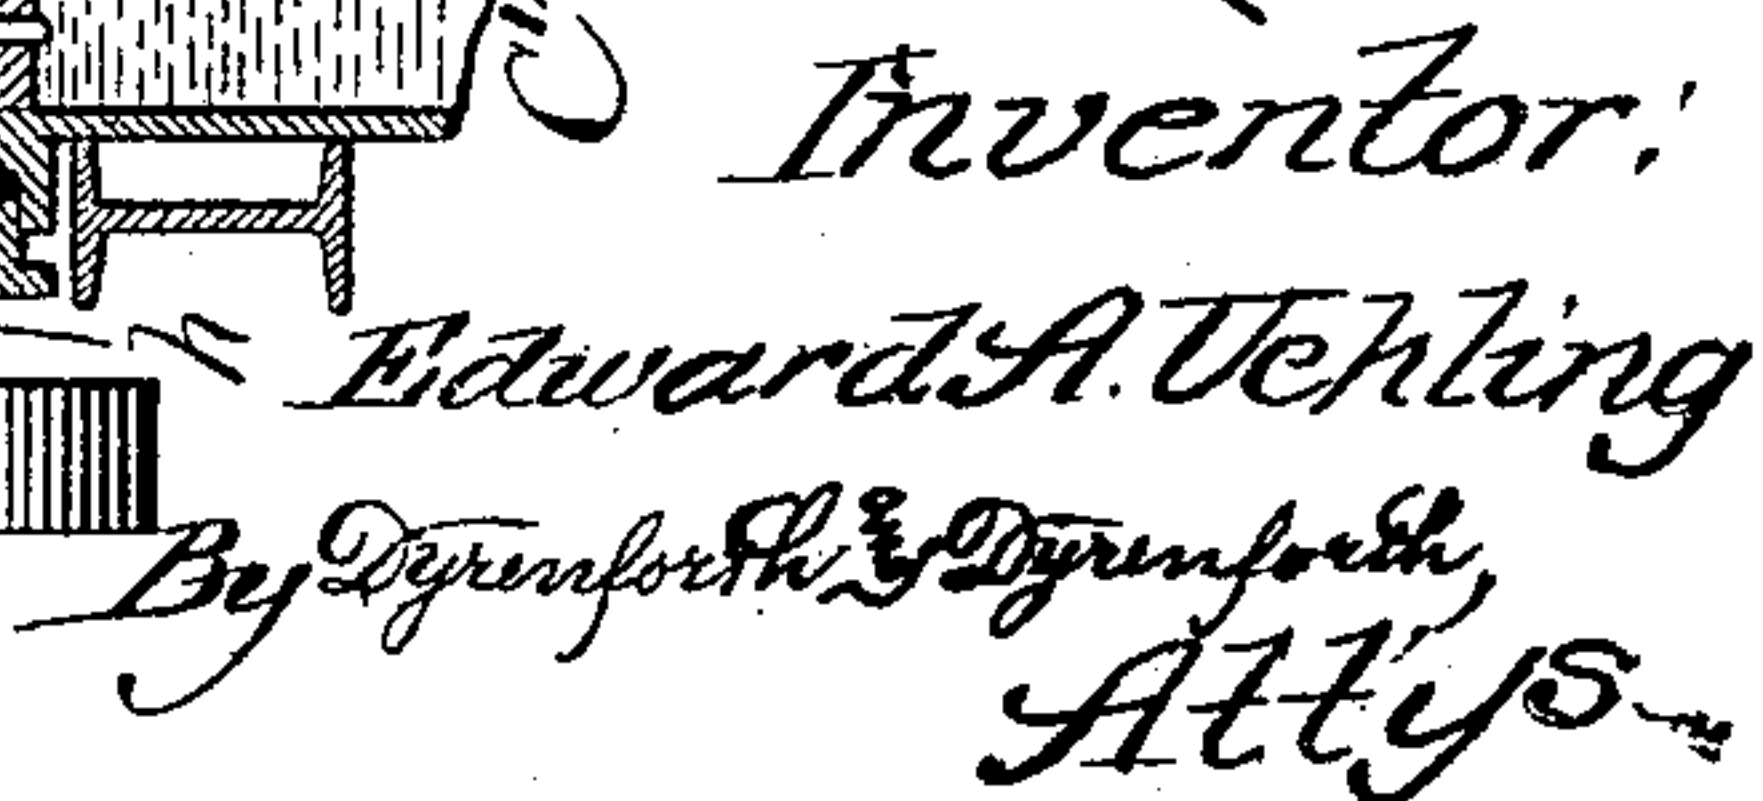 Inventor:
Edward A. Uehling
By Dyrenforth & Dyrenforth,
Att'ys